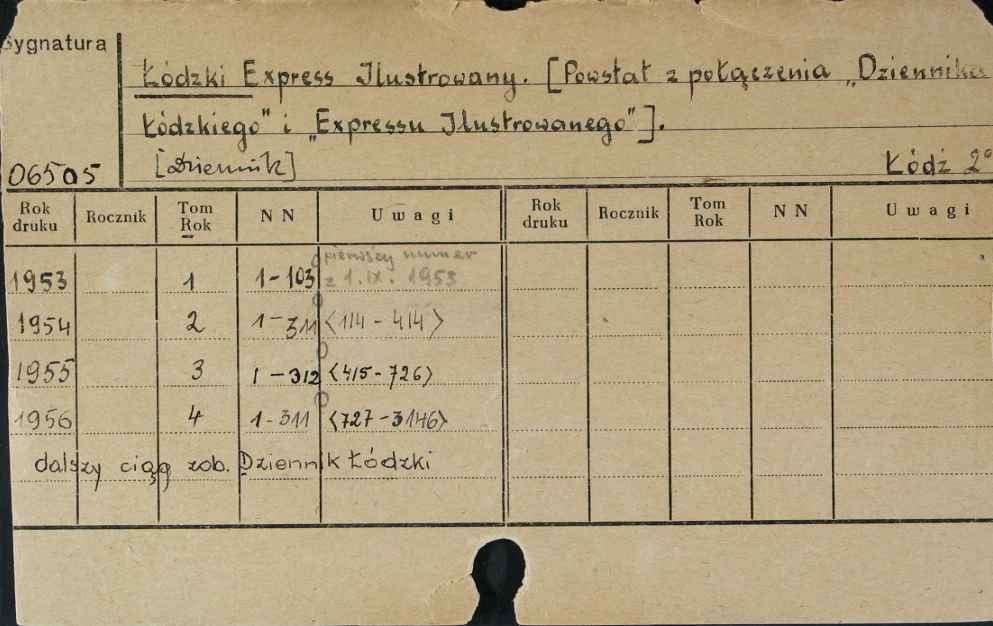 Sygnatura
Łódzki Express Ilustrowany. [Powstał z połączenia „Dziennika
Łódzkiego" i „Expressu Ilustrowanego"].
06505 [Dziennik] Łódź 2°
Rok druku Rocznik Tom Rok N N Uwagi Rok druku Rocznik Tom Rok N N Uwagi
pierwszy numer
1953 1 1-103 z 1.IX. 1953
1954 2 1-311 <114 - 414>
1955 3 1 - 312 <415 - 726>
1956 4 1-311 <727 - 3146>
dalszy ciąg zob. Dziennik Łódzki